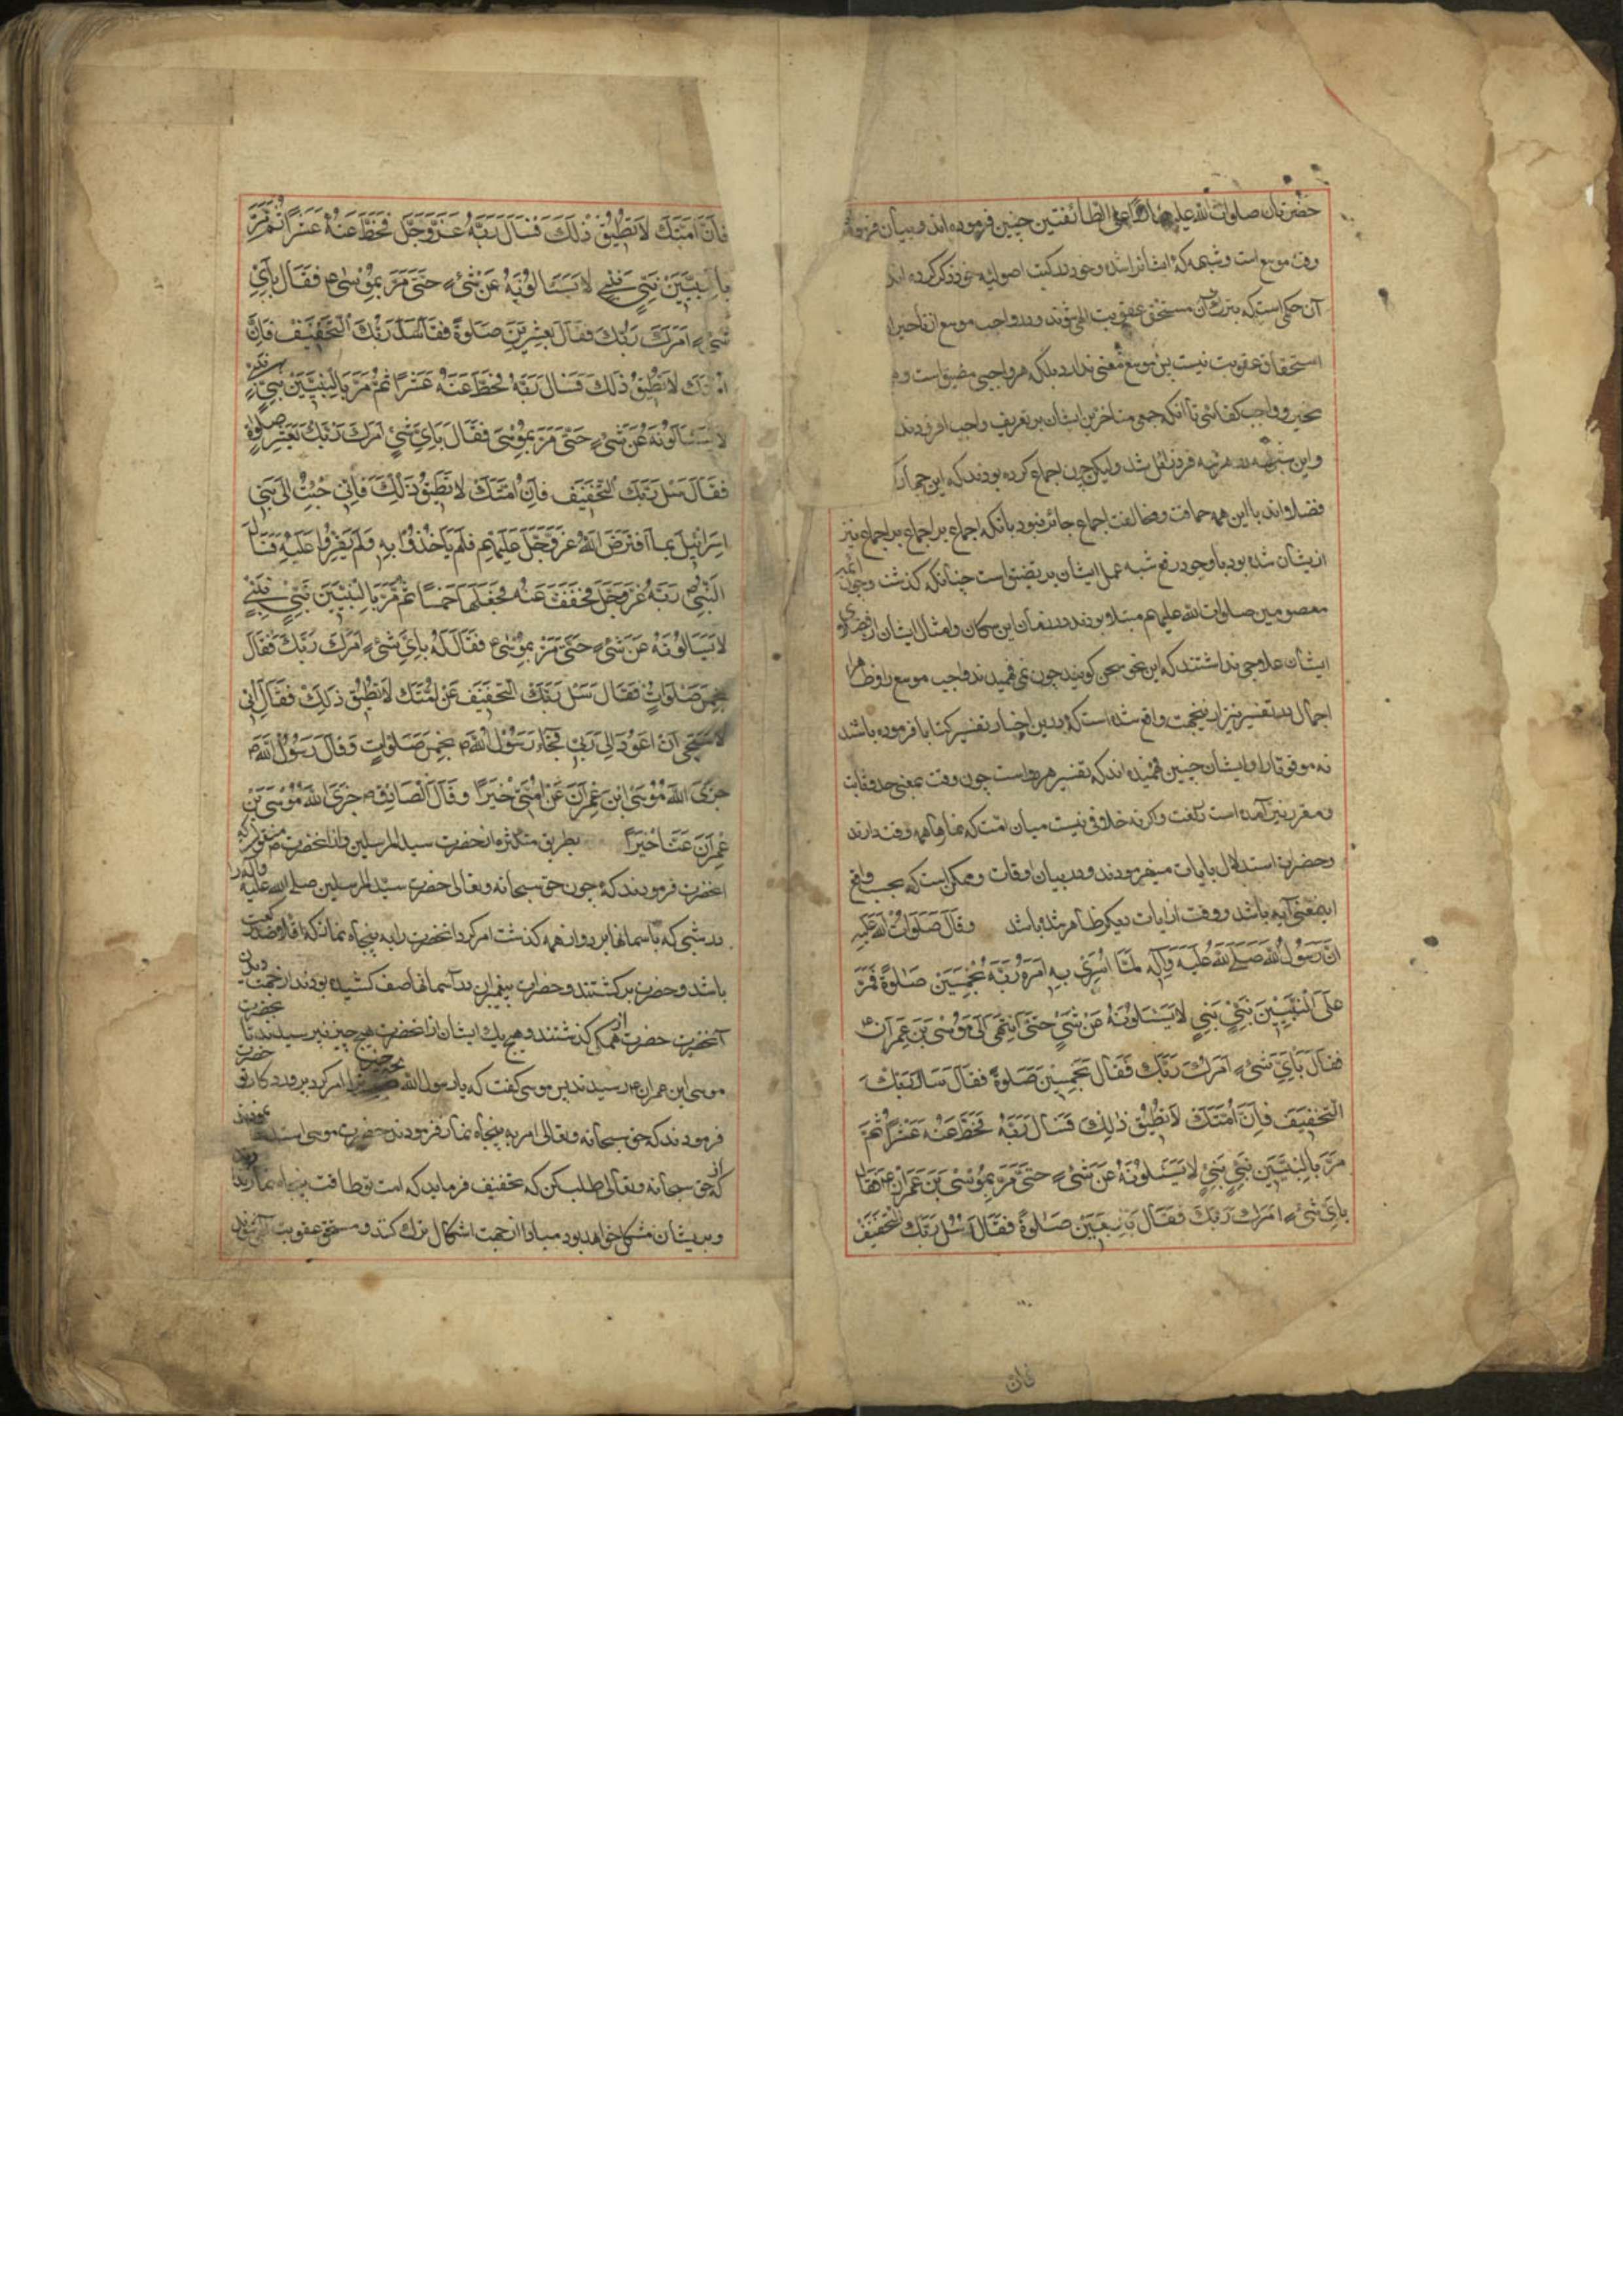 وقت موسع است و شبهه که ایشانرا شده و خود در کتب اصولیه خود ذکر کرده اند
آن حکمی است که بترک آن مستحق عقوبت الهی شوند و در واجب موسع از تاخیر
استحقاق عقوبت نیست پس موسع معنی ندارد بلکه هر واجبی مضیق است و
تخییر و واجب کفائی تا آنکه جمعی متاخرین ایشان بر تعریف واجب افزودند
و این شبهه در هر مرتبه نقل شد و لیکن چون اجماع کرده بودند که این جماعت
فضلااند با این همه حماقت و مخالفت اجماع جائز نبود با آنکه اجماع بر اجماع بر اجماع نیز
ازیشان شده بود با وجود رفع شبه عمل ایشان بر تضیق است چنانکه گذشت و چون ائمه
معصومین صلوات الله علیهم مبتلا بودند در زمان این سگان و امثال ایشان از فضلای
ایشان علاجی نداشتند که این نحو سخن گویند چون نمی فهمیدند واجب موسع را و ظاهرا
اجمال در تفسیر نیز ازینجهت واقع شده است که در این اخبار تفسیر کتابا فرموده باشند
نه موقوتا را و ایشان چنین فهمیده اند که تفسیر هر دو است چون وقت بمعنی حد وقات
و مقرر نیز آمده است نگفت و اگرنه خلافی نیست میان امت که نمازها همه وقت دارند
و حضرات استدلال بایات میفرمودند و در بیان اوقات و ممکن است که بحسب واقع
اینمعنی آیه باشد و وقت از ایات دیگر ظاهر شده باشد وَقَالَ صَلَوَاتُ اللهِ عَلَیْهِ
اِنَّ رَسُولَ اللهِ صَلَّى اللهُ عَلَیْهِ وَآلِهِ لَمَّا اُسْرِیَ بِهِ اَمَرَهُ رَبُّهُ بِخَمْسِینَ صَلٰوةً فَمَرَّ
عَلَى النَّبِیِّینَ نَبِیٍّ نَبِیٍّ لَا یَسْئَلُونَهُ عَنْ شَیْءٍ حَتَّى انْتَهَى اِلَى مُوسَى بْنِ عِمْرَانَ ع
فَقَالَ بِاَیِّ شَیْءٍ اَمَرَكَ رَبُّكَ فَقَالَ بِخَمْسِینَ صَلٰوةً فَقَالَ سَلْ رَبَّكَ
التَّخْفِیفَ فَاِنَّ اُمَّتَكَ لَا تُطِیقُ ذٰلِكَ فَسَأَلَ رَبَّهُ فَحَطَّ عَنْهُ عَشْرًا ثُمَّ
مَرَّ بِالنَّبِیِّینَ نَبِیٍّ نَبِیٍّ لَا یَسْئَلُونَهُ عَنْ شَیْءٍ حَتَّى مَرَّ بِمُوسَى بْنِ عِمْرَانَ ع فَقَالَ
بِاَیِّ شَیْءٍ اَمَرَكَ رَبُّكَ فَقَالَ بِاَرْبَعِینَ صَلٰوةً فَقَالَ سَلْ رَبَّكَ التَّخْفِیفَ
فان
فَاِنَّ اُمَّتَكَ لَا تُطِیقُ ذٰلِكَ فَسَأَلَ رَبَّهُ عَزَّ وَجَلَّ فَحَطَّ عَنْهُ عَشْرًا ثُمَّ مَرَّ
بِالنَّبِیِّینَ نَبِیٍّ نَبِیٍّ لَا یَسْئَلُونَهُ عَنْ شَیْءٍ حَتَّى مَرَّ بِمُوسَى ع فَقَالَ بِاَیِّ
شَیْءٍ اَمَرَكَ رَبُّكَ فَقَالَ بِعِشْرِینَ صَلَاوةً فَقَالَ سَلْ رَبَّكَ التَّخْفِیفَ فَاِنَّ
اُمَّتَكَ لَا تُطِیقُ ذٰلِكَ فَسَأَلَ رَبَّهُ فَحَطَّ عَنْهُ عَشْرًا ثُمَّ مَرَّ بِالنَّبِیِّینَ نَبِیٍّ نَبِیٍّ
لَا یَسْئَلُونَهُ عَنْ شَیْءٍ حَتَّى مَرَّ بِمُوسَى فَقَالَ بِاَیِّ شَیْءٍ اَمَرَكَ رَبُّكَ بِعَشْرِ صَلَوٰةٍ
فَقَالَ سَلْ رَبَّكَ التَّخْفِیفَ فَاِنَّ اُمَّتَكَ لَا تُطِیقُ ذٰلِكَ فَاِنِّی جِئْتُ اِلَى بَنِی
اِسْرَائِیلَ بِمَا افْتَرَضَ اللهُ عَزَّ وَجَلَّ عَلَیْهِمْ فَلَمْ یَأْخُذُوا بِهِ وَلَمْ یَقِرُّوا عَلَیْهِ فَسَأَلَ
النَّبِیُّ رَبَّهُ عَزَّ وَجَلَّ فَخَفَّفَ عَنْهُ فَجَعَلَهَا خَمْسًا ثُمَّ مَرَّ بِالنَّبِیِّینَ نَبِیٍّ نَبِیٍّ
لَا یَسْئَلُونَهُ عَنْ شَیْءٍ حَتَّى مَرَّ بِمُوسَى ع فَقَالَ لَهُ بِاَیِّ شَیْءٍ اَمَرَكَ رَبُّكَ فَقَالَ
بِخَمْسِ صَلَوَاتٍ فَقَالَ سَلْ رَبَّكَ التَّخْفِیفَ عَنْ اُمَّتِكَ لَا تُطِیقُ ذٰلِكَ فَقَالَ اِنِّی
لَاَسْتَحْیِی اَنْ اَعُودَ اِلَى رَبِّی فَجَاءَ رَسُولُ اللهِ ص بِخَمْسِ صَلَوَاتٍ وَقَالَ رَسُولُ اللهِ ص
جَزَى اللهُ مُوسَى ابْنَ عِمْرَانَ عَنْ اُمَّتِی خَیْرًا وَقَالَ الصَّادِقُ ع جَزَى اللهُ مُوسَى بْنَ
عِمْرَانَ عَنَّا خَیْرًا بطریق متکثره از حضرت سید المرسلین و از آنحضرت ص منقولست که
آنحضرت فرمودند که چون حق سبحانه و تعالی حضرت سید المرسلین صلی الله علیه وآله را
در شبی که باسمانها برد و از همه گذشت امر کرد آنحضرت را به پنجاه نماز که
باشد و حضرت برگشتند و حضرات پیغمبران در آسمانها صف کشیده بودند از جهت دیدن
آنحضرت حضرت از همگی گذشتند و هیچ یک ایشان از آنحضرت هیچ چیز نپرسیدند تا بحضرت
موسی ابن عمران ع رسیدند پس موسی گفت که یا رسول الله بچه چیز ترا امر کرد پروردگار تو حضرت
فرمودند که حق سبحانه و تعالی امر به پنجاه نماز فرمودند حضرت موسی
که از حق سبحانه و تعالی طلب کن که تخفیف فرماید که امت تو طاقت پنجاه نماز ندارند
و بریشان مشکل خواهد بود مبادا از جهت اشکال ترک کنند و مستحق عقوبت الهی شوند